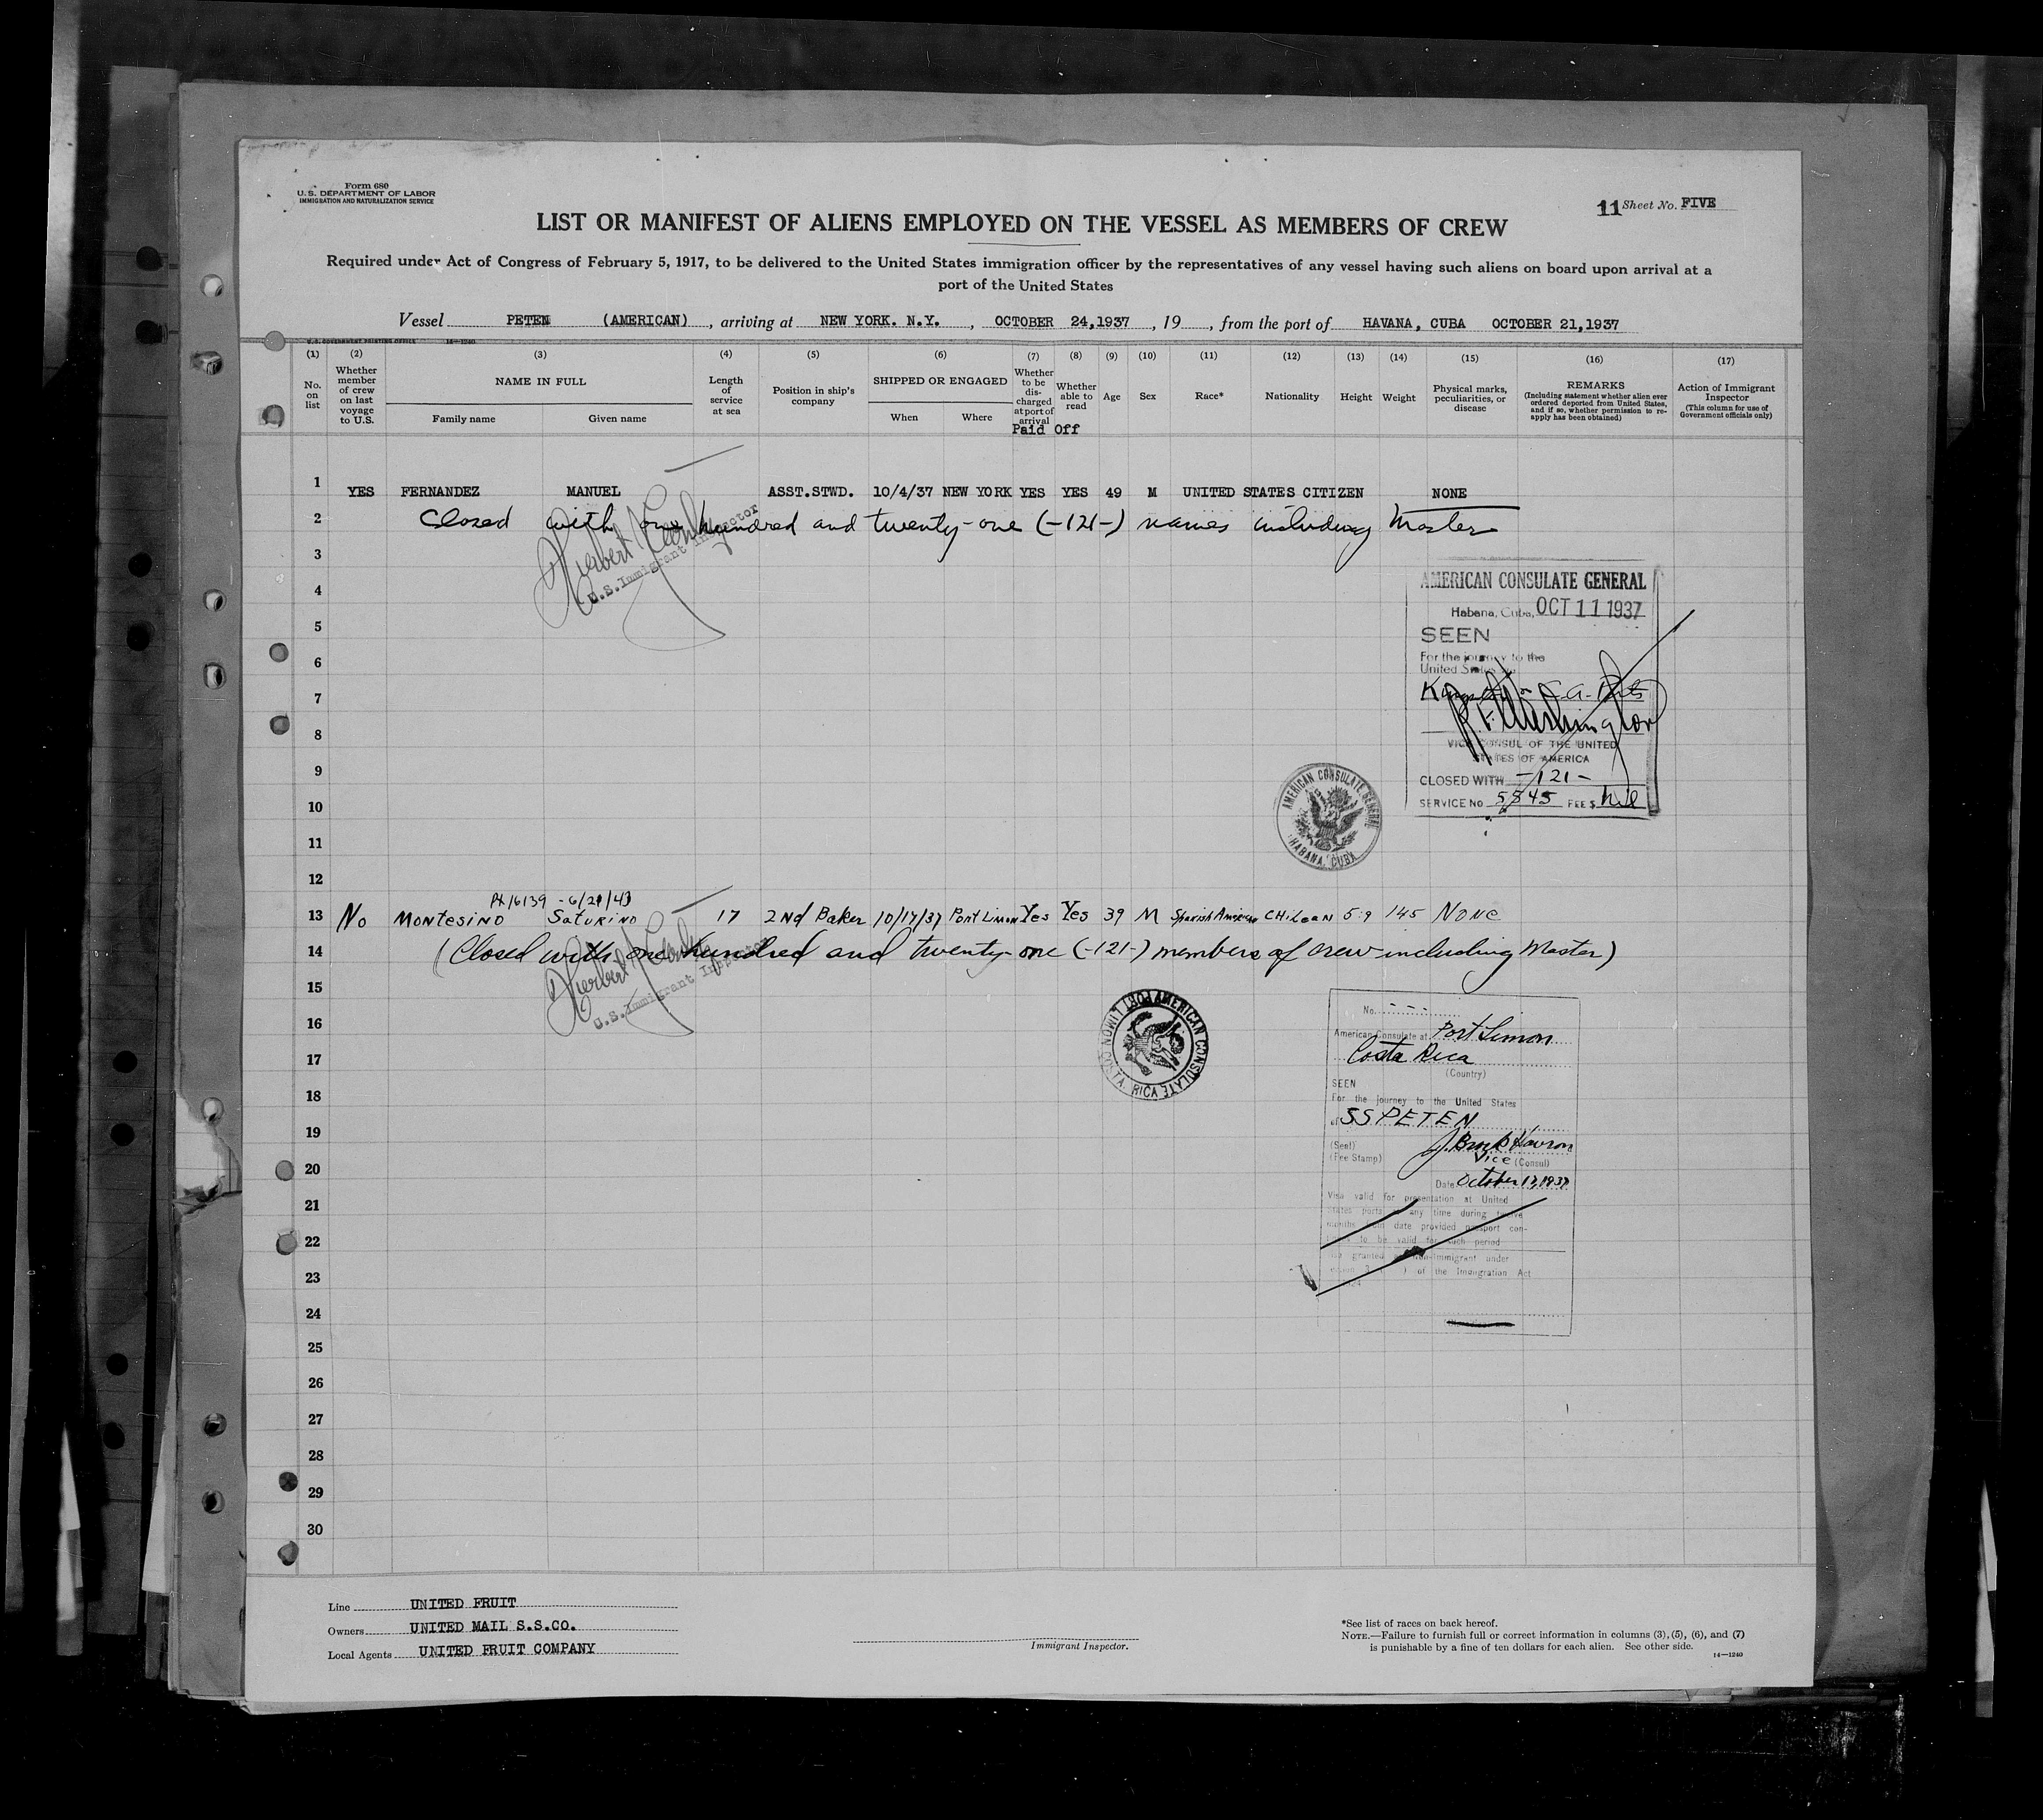 Form 680
U.S. DEPARTMENT OF LABOR
IMMIGRATION AND NATURALIZATION SERVICE
11 Sheet No. FIVE
LIST OR MANIFEST OF ALIENS EMPLOYED ON THE VESSEL AS MEMBERS OF CREW
Required under Act of Congress of February 5, 1917, to be delivered to the United States immigration officer by the representatives of any vessel having such aliens on board upon arrival at a
port of the United States
Vessel PETEN (AMERICAN), arriving at NEW YORK. N.Y., OCTOBER 24,1937, 19, from the port of HAVANA, CUBA OCTOBER 21,1937
U.S. GOVERNMENT PRINTING OFFICE 14—1240
(1) (2) (3) (4) (5) (6) (7) (8) (9) (10) (11) (12) (13) (14) (15) (16) (17)
No. on list
Whether member of crew on last voyage to U.S.
NAME IN FULL
Family name
Given name
Length of service at sea
Position in ship's company
SHIPPED OR ENGAGED
When
Where
Whether to be discharged at port of arrival
Paid Off
Whether able to read
Age
Sex
Race*
Nationality
Height
Weight
Physical marks, peculiarities, or disease
REMARKS
(Including statement whether alien ever ordered deported from United States, and if so, whether permission to re-apply has been obtained)
Action of Immigrant Inspector
(This column for use of Government officials only)
1 YES FERNANDEZ MANUEL ASST.STWD. 10/4/37 NEW YORK YES YES 49 M UNITED STATES CITIZEN NONE
2 Closed with one hundred and twenty-one (-121-) names including Master
U.S. Immigrant Inspector
3
4
5
6
7
8
9
10
11
12
AMERICAN CONSULATE GENERAL
Habana, Cuba, OCT 11 1937
SEEN
For the journey to the
United States
VICE CONSUL OF THE UNITED
STATES OF AMERICA
CLOSED WITH -121-
SERVICE NO 5545 FEE $ Nil
AMERICAN CONSULATE GENERAL
HABANA, CUBA
6/21/43
13 No Montesino Saturino 17 2nd Baker 10/17/37 Port Limon Yes Yes 39 M Spanish American CHiLean 5:9 145 None
14 (Closed with one hundred and twenty-one (-121-) members of crew including Master)
U.S. Immigrant Inspector
15
16
17
18
19
20
21
22
23
24
25
26
27
28
29
30
AMERICAN CONSULATE
COSTA RICA
No.
American Consulate at Port Limon
Costa Rica
(Country)
SEEN
For the journey to the United States
of SS PETEN
(Seal)
(Fee Stamp)
Vice (Consul)
Date October 17, 1937
Visa valid for presentation at United
States ports at any time during twelve
months from date provided passport con-
tinues to be valid for such period
of the Immigration Act
Line UNITED FRUIT
Owners UNITED MAIL S.S.CO.
Local Agents UNITED FRUIT COMPANY
Immigrant Inspector.
*See list of races on back hereof.
NOTE.—Failure to furnish full or correct information in columns (3), (5), (6), and (7)
is punishable by a fine of ten dollars for each alien. See other side.
14—1240